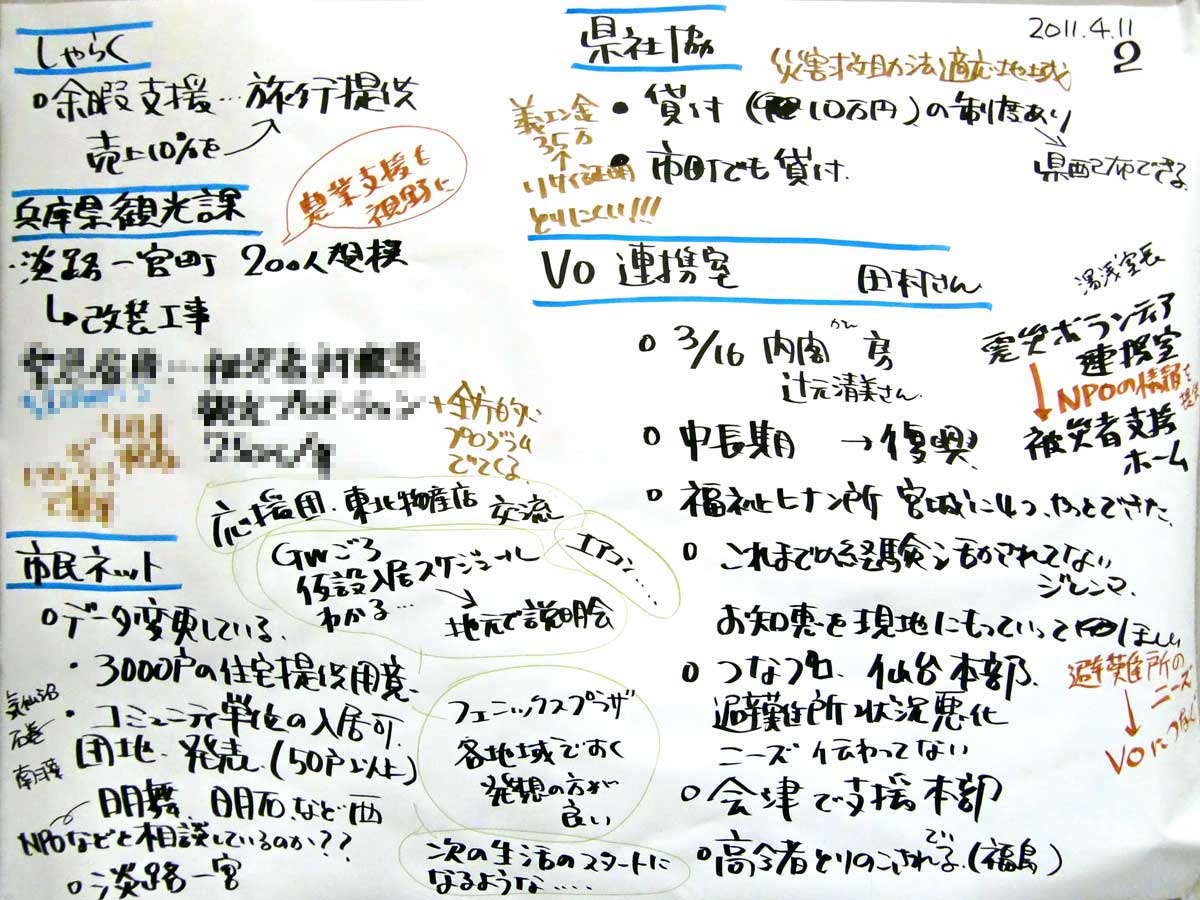 しゃらく
○余暇支援…旅行提供
売上10%を
農業支援も
視野に
兵庫県観光課
・淡路一宮町 200人規模
↳改装工事
観光プロモーション
全庁的に
プログラム
でてくる
応援団・東北物産店 交流
GWごろ
仮設入居スケジュール
わかる…
地元で説明会
エアコン…
市民ネット
○データ変更している。
・3000戸の住宅提供用意。
・コミュニティ単位の入居可。
気仙沼
石巻
南三陸
団地、発表。(50戸以上)
明舞、明石など西
NPOなどと相談しているのか??
○淡路一宮
フェニックスプラザ
各地域ですく
発想の方が
良い
次の生活のスタートに
なるような….
2011.4.11
2
県社協
災害救助法適応地域
・貸付(10万円)の制度あり
県配布できる
・市町でも貸付.
義エン金
35万
↑
りさい証明
とりにくい!!!
Vo 連携室 田村さん
湯浅室長
震災ボランティア
連携室
NPOの情報を
提供
被災者支援
ホーム
○3/16 内閣官房
かん
辻元清美さん
○中長期 →復興.
○福祉ヒナン所 宮城に4つ やっとできた.
○これまでの経験活かされてない
ジレンマ.
お知恵を現地にもっていってほしい
○つなプロ、仙台本部.
避難所状況悪化
ニーズ伝わってない
避難所の
ニーズ
↓
VOにつなぐ
○会津で支援本部
○高令者とりのこされる.(福島)
でる